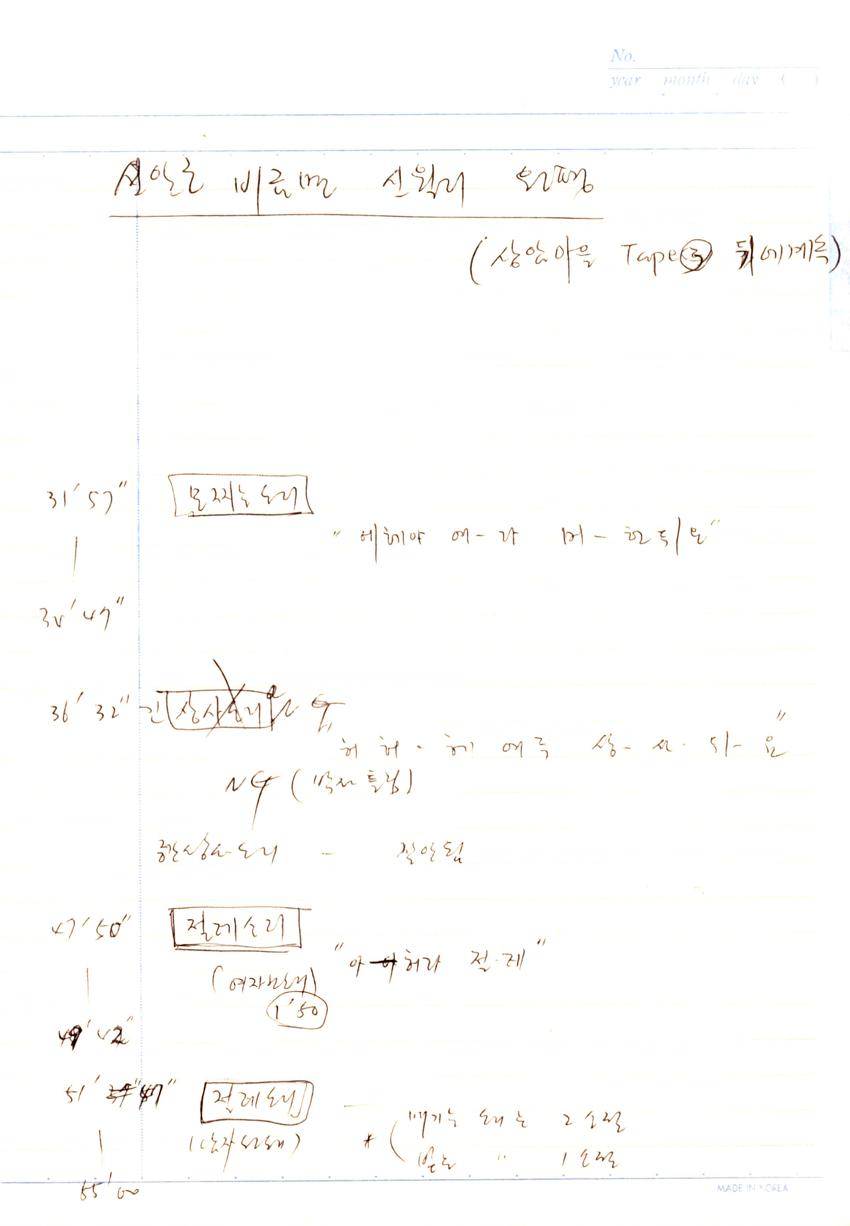 No.
year month day ( )
신안군 비금면 신월리 원평
(상암마을 Tape③ 뒤에계속)
31′57″ 모찌는소리
"에헤야 에-라 머-한뒤요"
36′32″ 긴 상사소리 NG
허 허-헤 에루 상-사·뒤-요"
NG (박자틀림)
상사소리 - 잘안됨
47′50″ 절레소리
"아 허라 절·레"
(여자노래)
1′50
49′42″
51′47″ 절레소리
(남자노래) * ( 메기는 소리는 2소절
받는 " 1소절
55′00
MADE IN KOREA